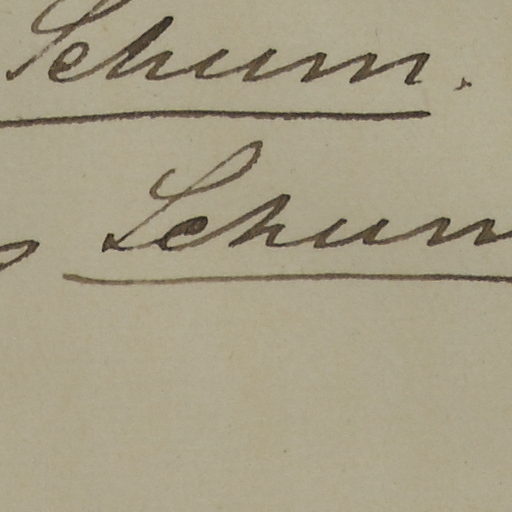 Schum.
Schum